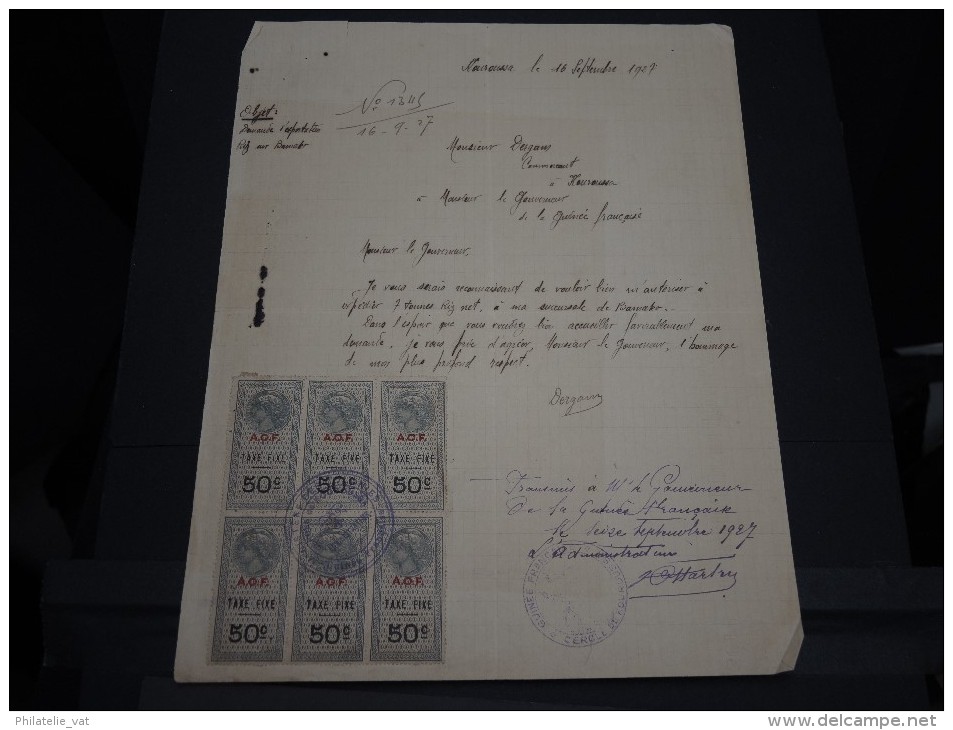 Kouroussa le 16 Septembre 1927
Objet:
Demande d'exportation
Riz sur Bamako
16-9-27
Monsieur Dergam
Commercant
à Kouroussa
à Monsieur le Gouverneur
de la Guinée française
Monsieur le Gouverneur,
Je vous serais reconnaissant de vouloir bien m'autoriser à
expédier 7 tonnes Riz net, à ma succursale de Bamako.-
Dans l'espoir que vous voudrez bien accueillir favorablement ma
demande, je vous prie d'agréer, Monsieur le Gouverneur, l'hommage
de mon plus profond respect.
Dergam
Transmis à Mr le Gouverneur
de la Guinée Française
le seize septembre 1927
L'Administrateur
A.O.F. A.O.F. A.O.F.
TAXE FIXE TAXE FIXE TAXE FIXE
50c 50c 50c
A.O.F. A.O.F. A.O.F.
TAXE FIXE TAXE FIXE TAXE FIXE
50c 50c 50c
Philatelie_vat
www.delcampe.net